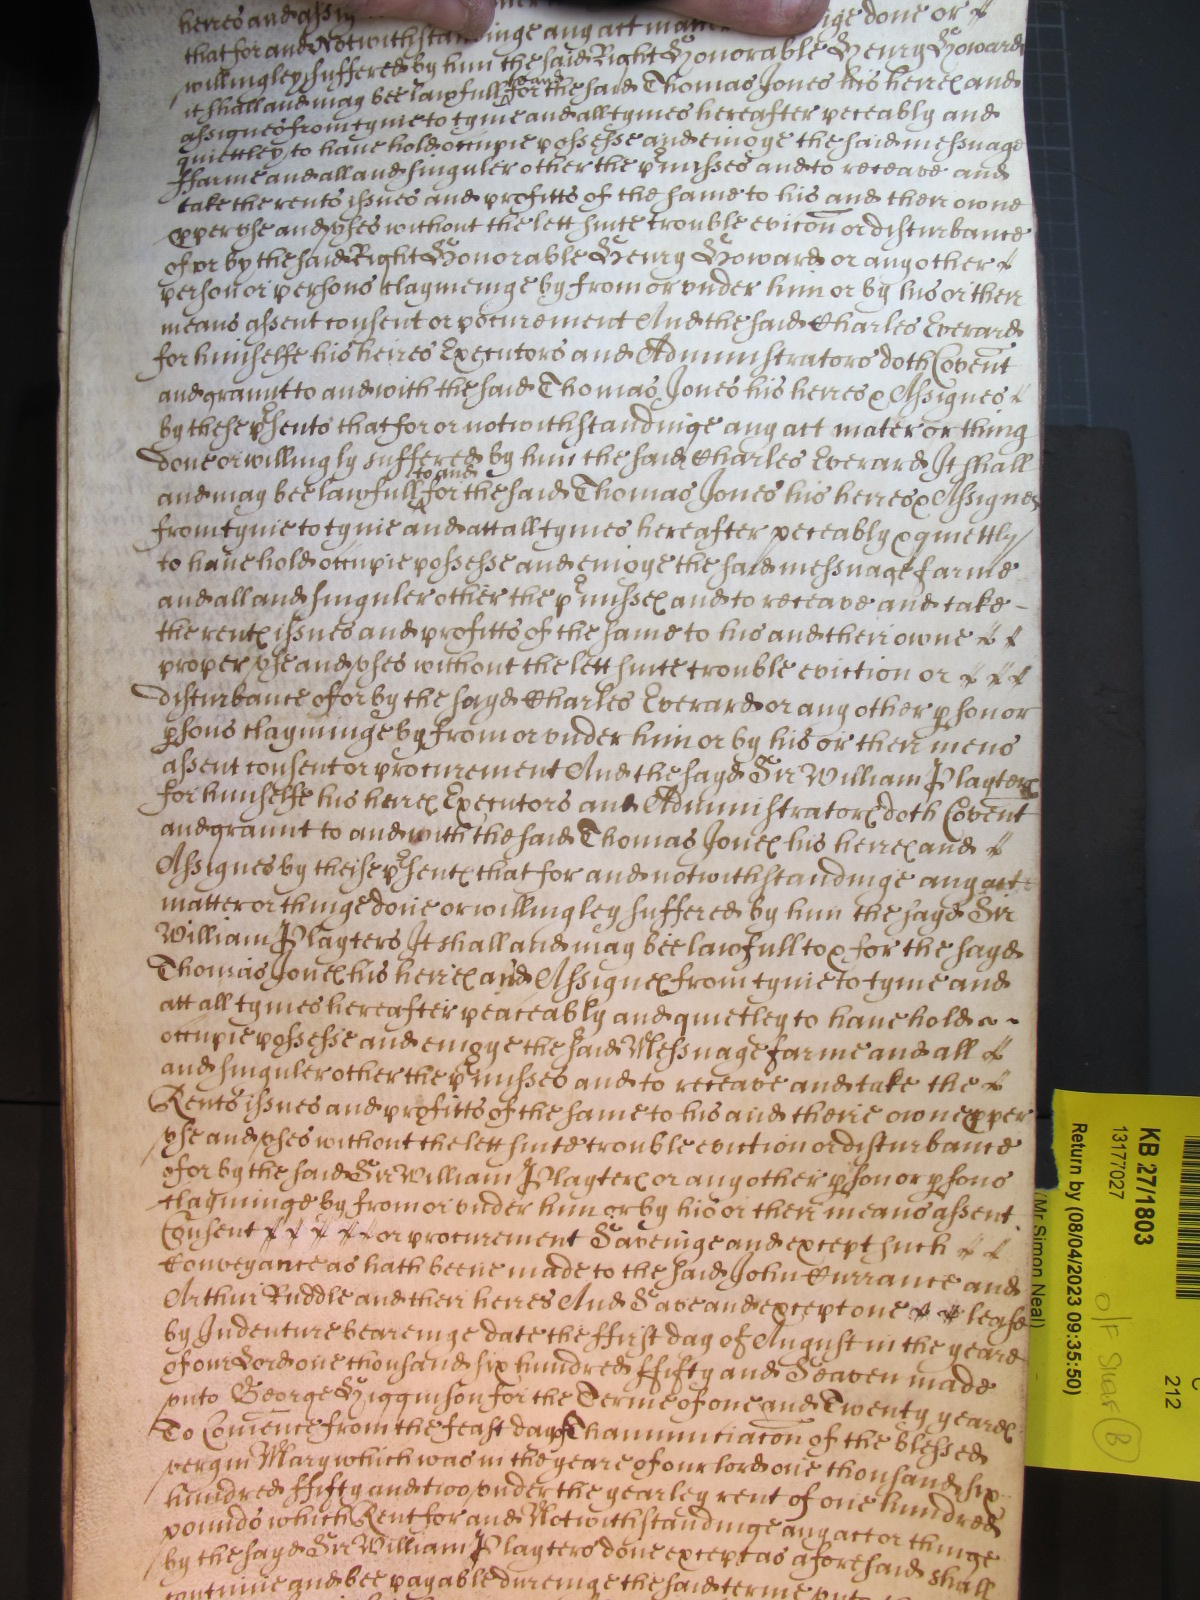 heires and assig
that for and Notwithstandinge any act mat ige done or
willingley suffered by him the said Right Honorable Henry Howard
it shall and may bee lawfull to and for the said Thomas Jones his heires and
assignes from tyme to tyme and all tymes hereafter peceably and
quiettley to have hold occupie possesse and enioye the said messuage
ffarme and all and singuler other the p'misses and to receave and
take the rents issues and profitts of the same to his and their owne
pper vse and vses without the lett suite trouble evic̃on or disturbance
of or by the said Right Honorable Henry Howard or any other
person or persons claymeinge by from or vnder him or by his or their
means assent consent or procurement And the said Charles Everard
for himselfe his heires Executors and Administrators doth Covent
and graunt to and with the said Thomas Jones his heires & Assignes
by these p'sents that for or notwithstandinge any act mater or thing
done or willingly suffered by him the said Charles Everard It shall
and may bee lawfull to and for the said Thomas Jones his heires & Assignes
from tyme to tyme and att all tymes hereafter peceably & quiettly
to haue hold occupie possesse and enioye the said messuage farme
and all and singuler other the p'misses and to receave and take
the rents issues and profitts of the same to his and their owne
proper vse and vses without the lett suite trouble eviction or
disturbance of or by the sayd Charles Everard or any other pson or
psons clayminge by from or vnder him or by his or their mens
assent consent or procurement And the sayd Sir William Playters
for himselfe his heires Executors and Administrators doth Covent
and graunt to and with the said Thomas Jones his heires and
Assignes by theise p'sents that for and notwithstandinge any acte
matter or thinge done or willingley suffered by him the sayd Sir
William Playters It shall and may bee lawfull to & for the sayd
Thomas Jones his heires and Assignes from tyme to tyme and
att all tymes hereafter peaceably and quietley to haue hold
occupie possesse and enioye the said Messuage farme and all
and singuler other the p'misses and to receave and take the
Rents issues and profitts of the same to his and theire owne pper
vse and vses without the lett suite trouble eviction or disturbance
of or by the said Sir William Playters or any other pson or psons
clayminge by from or vnder him or by his or their means assent
Consent or procurement Saveinge and except such
Conveyance as hath beene made to the said John Currance and
Arthur Ruddle and their heires And Save and except one lease
by Indenture beareinge date the ffirst day of August in the yeare
of our Lord one thousand six hundred ffifty and Seaven made
vnto George Higginson for the Terme of one and Twenty yeares
To Com̃ence from the feast day of Thannunciac̃on of the blessed
vergin Mary which was in the yeare of our lord one thousand six
hundred ffifty and two vnder the yearley rent of one hundred
pounds which Rent for and Notwithstandinge any act or thinge
by the sayd Sir William Playters done except as aforesaid shall
continue and bee payable dureinge the said terme vnto
KB 27/1803
13177027
Return by (08/04/2023 09:35:50)
(Mr Simon Neal)
212
O/F
B